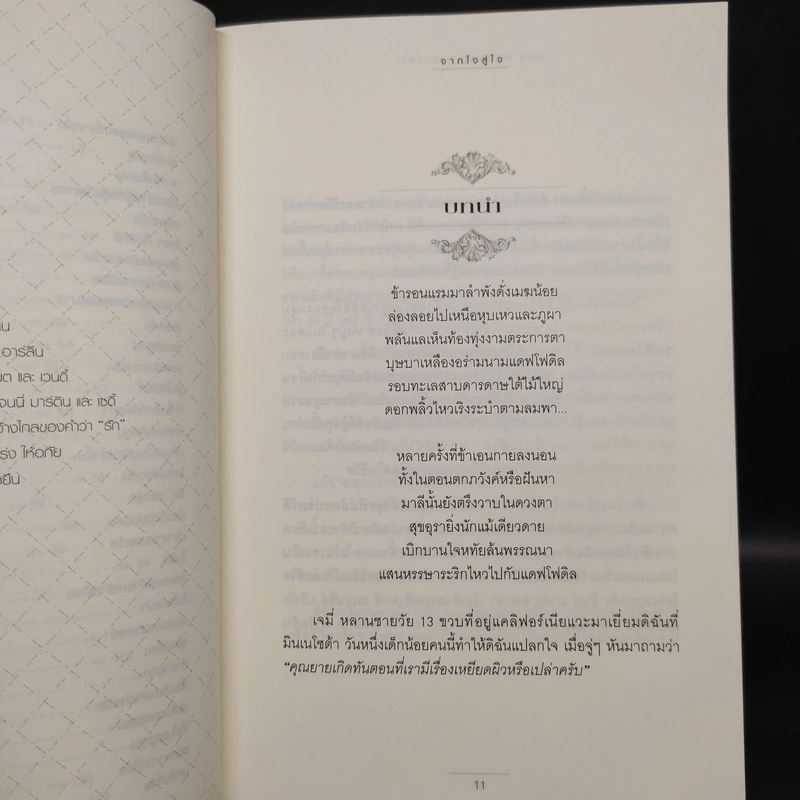 าน
อาร์ลีน
และ เวนดี้
จนนี่ มาร์ติน และ เชดี้
ว้างไกลของคำว่า “รัก”
ให้อภัย
งยืน
จากใจสู่ใจ
บทนำ
ข้ารอนแรมมาลำพังดั่งเมฆน้อย
ล่องลอยไปเหนือหุบเหวและภูผา
พลันแลเห็นท้องทุ่งงามตระการตา
บุษบาเหลืองอร่ามนามแดฟโฟดิล
รอบทะเลสาบดารดาษใต้ไม้ใหญ่
ดอกพลิ้วไหวเริงระบำตามลมพา...
หลายครั้งที่ข้าเอนกายลงนอน
ทั้งในตอนตกภวังค์หรือฝันหา
มาลีนั้นยังตรึงวาบในดวงตา
สุขอุรายิ่งนักแม้เดียวดาย
เบิกบานใจหทัยล้นพรรณนา
แสนหรรษาระริกไหวไปกับแดฟโฟดิล
เจมี่ หลานชายวัย 13 ขวบที่อยู่แคลิฟอร์เนียแวะมาเยี่ยมดิฉันที่
มินเนโซต้า วันหนึ่งเด็กน้อยคนนี้ทำให้ดิฉันแปลกใจ เมื่อจู่ๆ หันมาถามว่า
“คุณยายเกิดทันตอนที่เรามีเรื่องเหยียดผิวหรือเปล่าครับ”
11